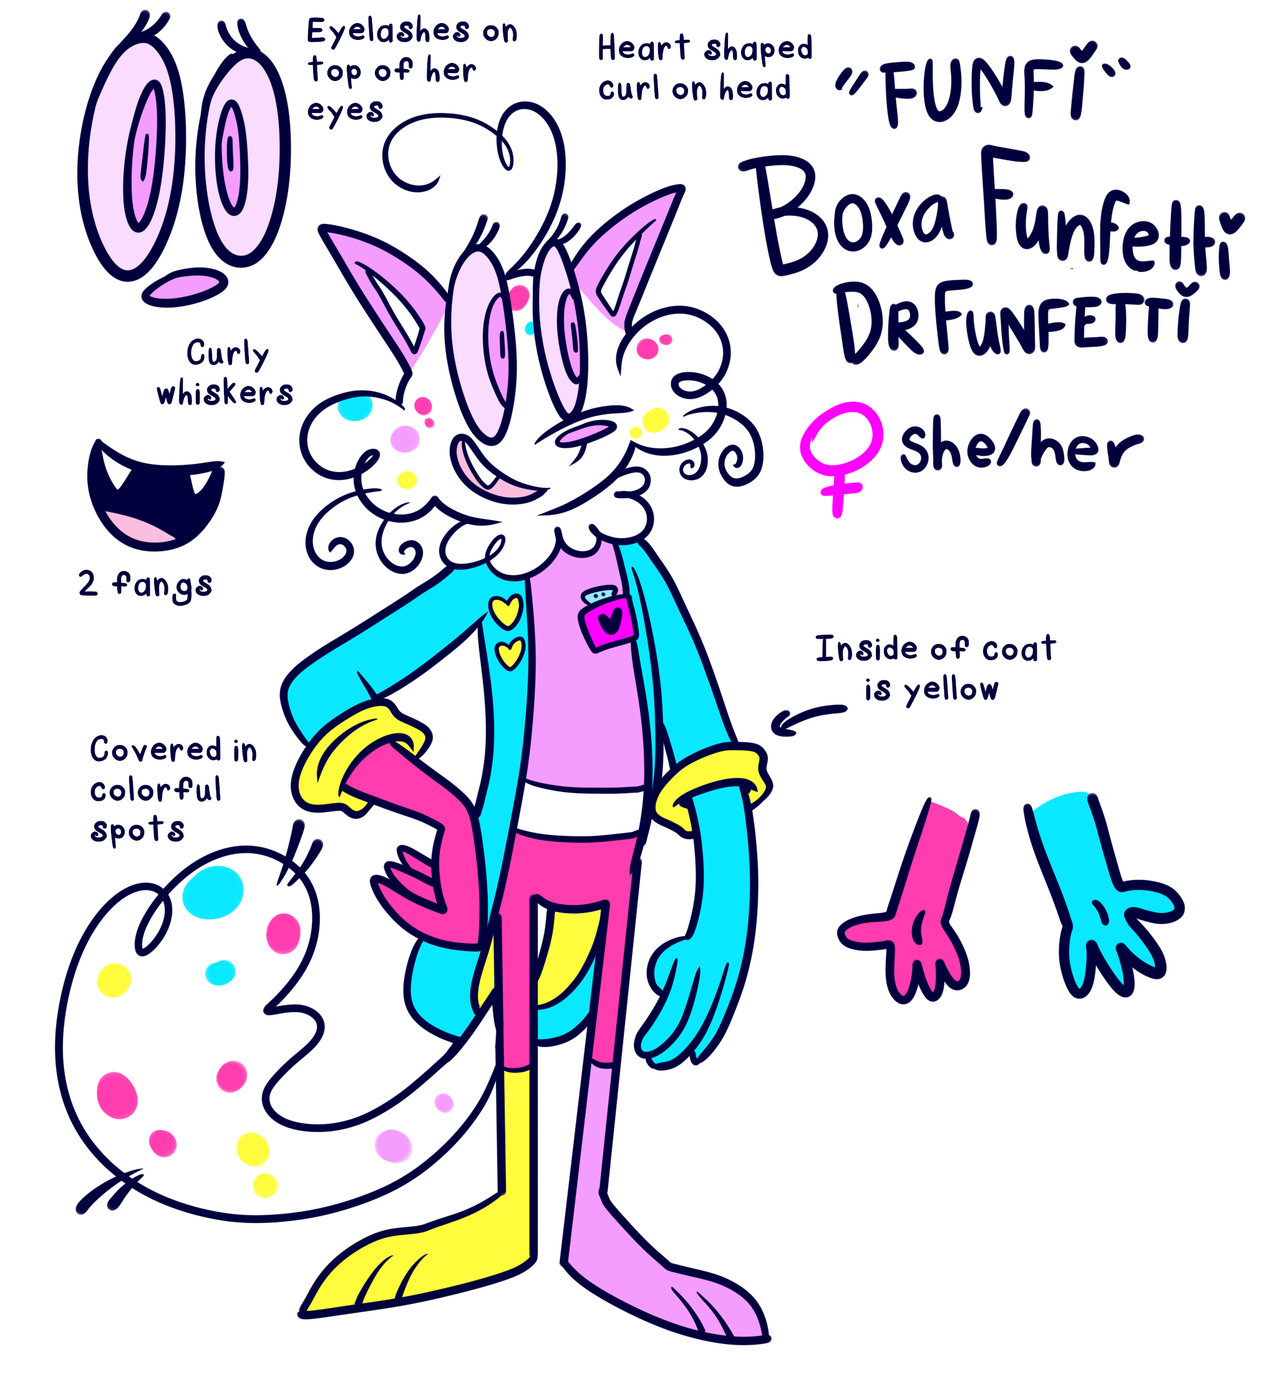 Eyelashes on
top of her
eyes
Heart shaped
curl on head
"FUNFi"
Boxa Funfetti
DR FUNFETTi
she/her
Curly
whiskers
2 fangs
Inside of coat
is yellow
Covered in
colorful
spots